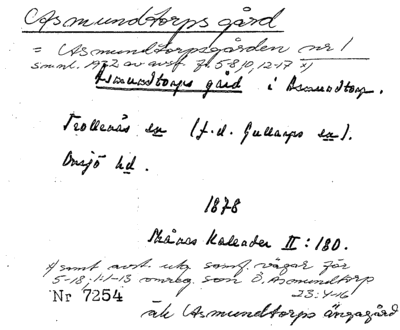 Asmundtorps gård
= Asmundtorpsgården nr 1
sml. 1972 av avst. fr 5-8, 10, 12-17 x)
Asmundtorps gård i Asmundtorp.
Trollenäs sn (f.d. Gullarps sn).
Onsjö hd.
1878
Skånes Kalender II: 180.
x) samt avst. utg samf. vägar för
5-18, 1:1-13 omreg. som Ö. Asmundtorp
23:4-16
Nr 7254
äk Asmundtorps ängagård